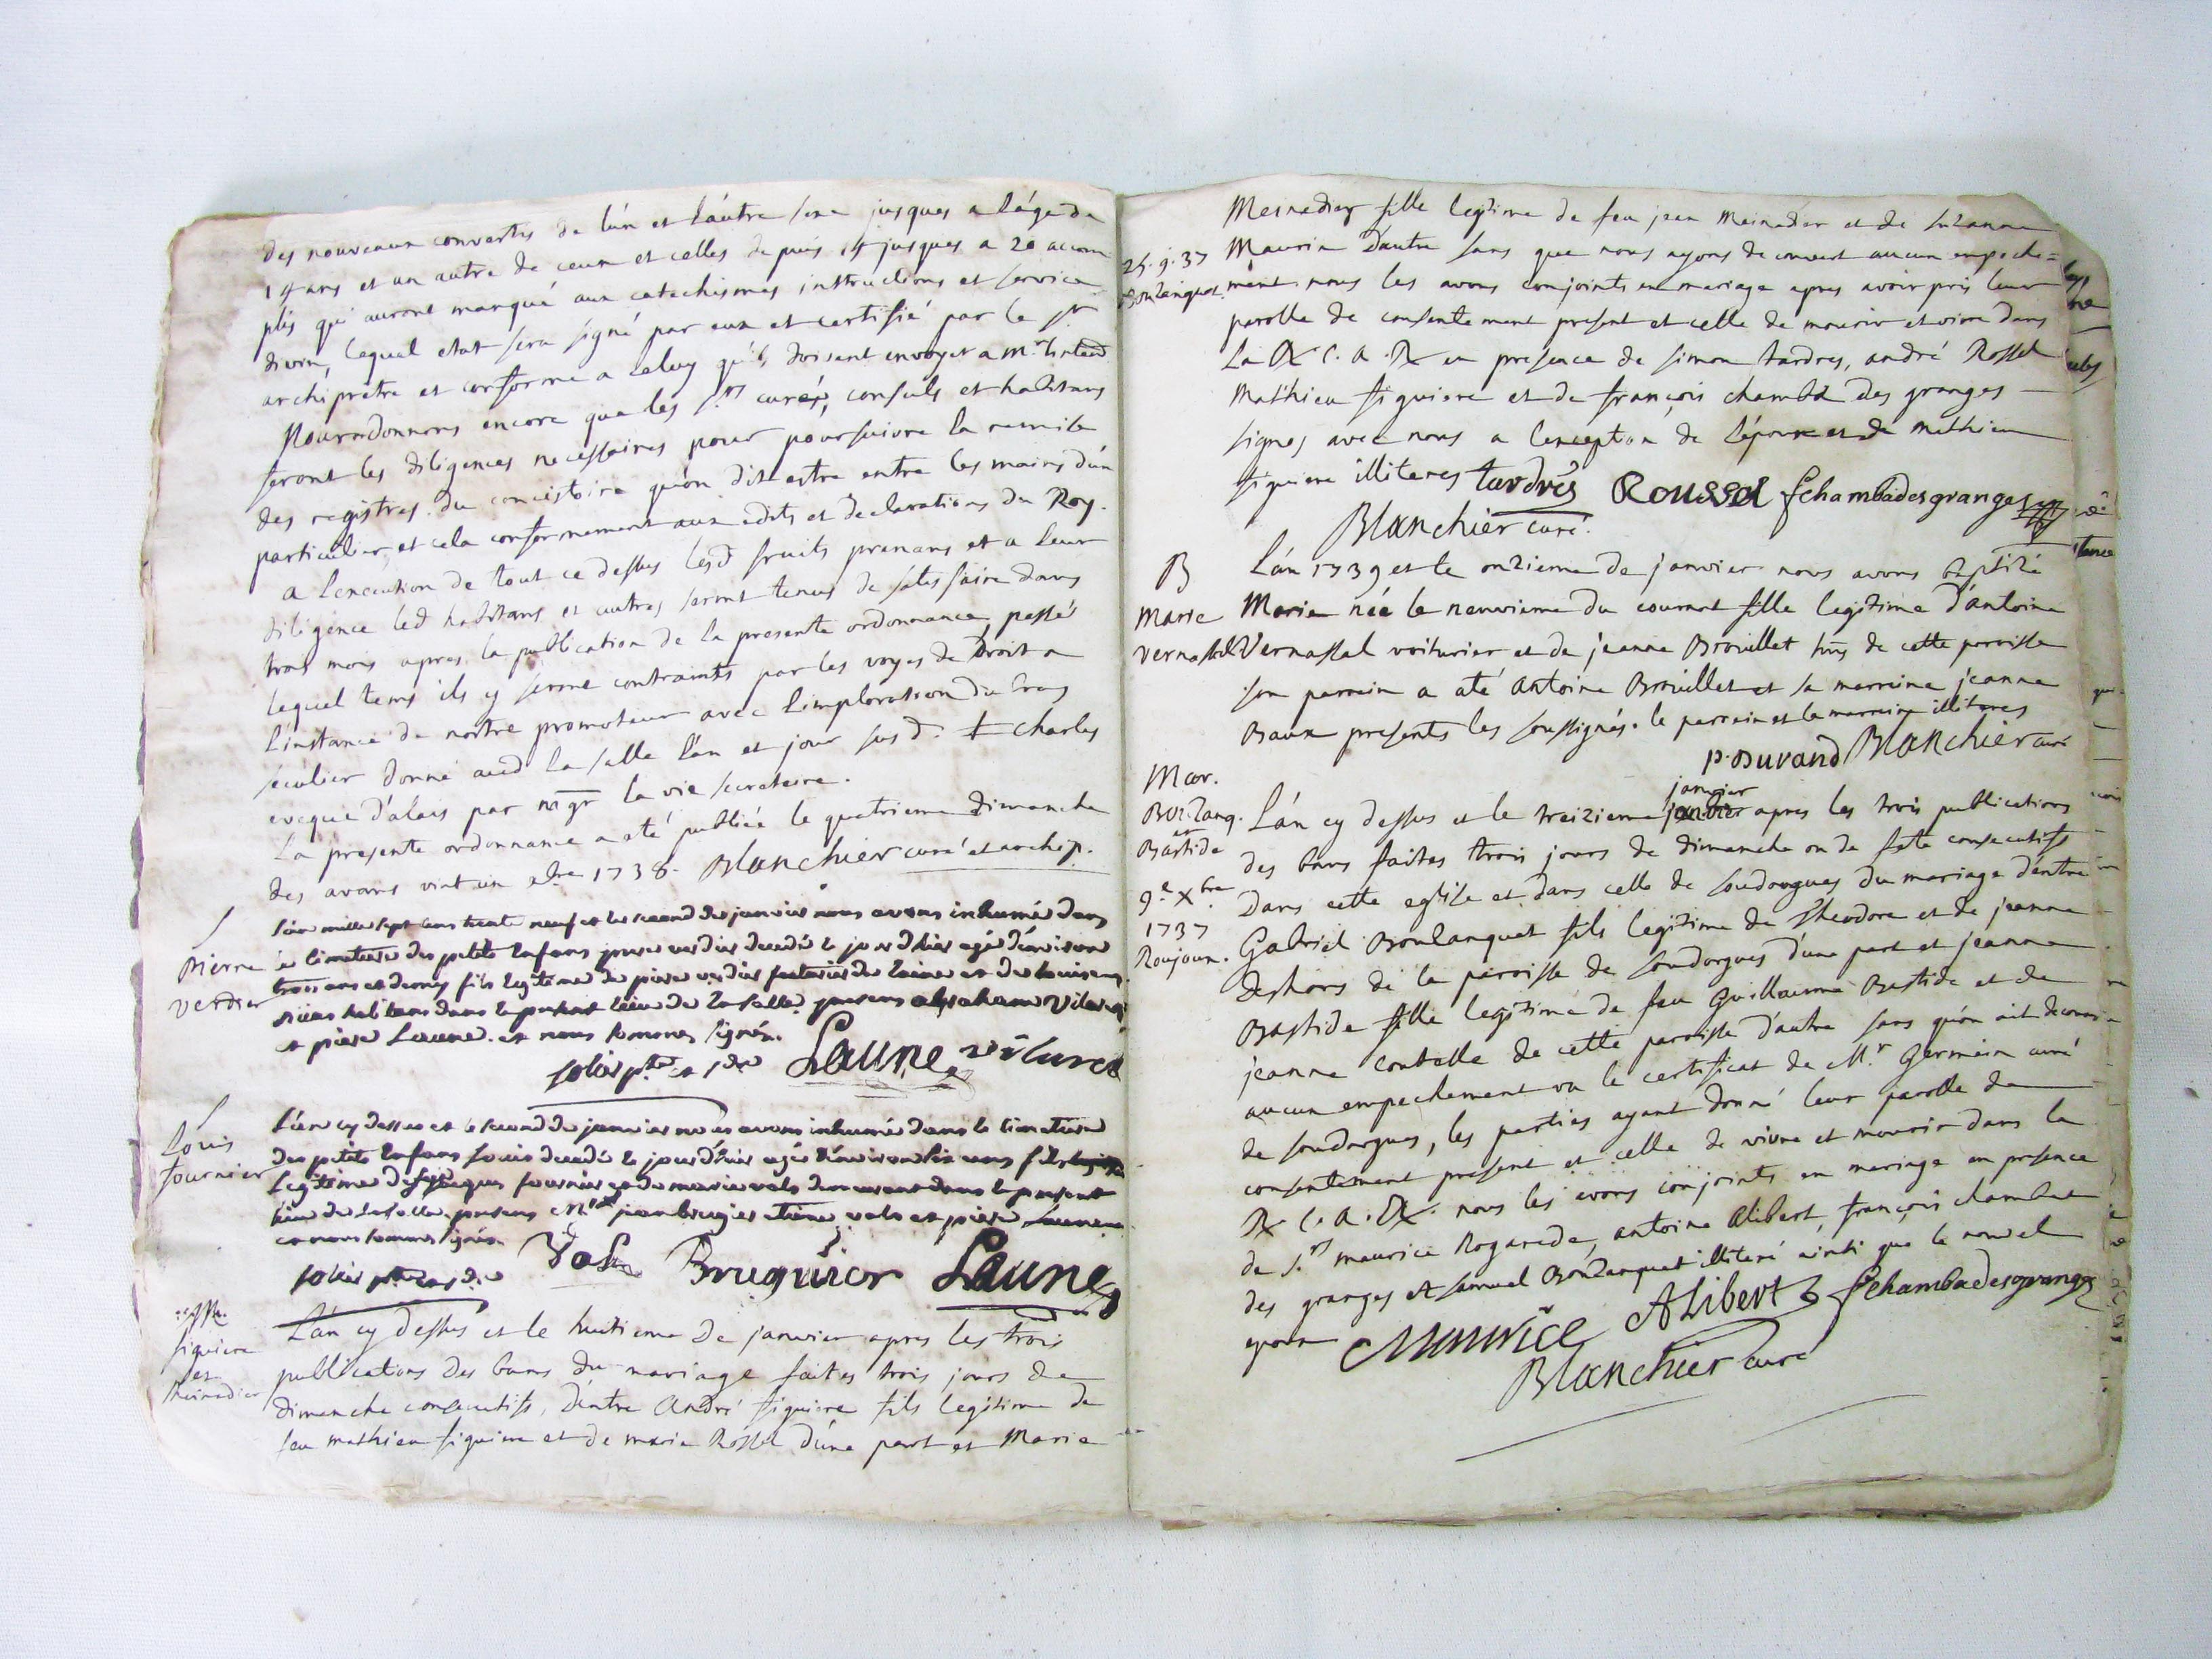 des nouveaux convertis de l'un et l'autre sexe jusques a l'âge de
14 ans et un autre de ceux et celles depuis 14 jusques a 20 accom
plis qui auront manqué aux catechismes instructions et service
divin, lequel etat sera signé par eux et certifié par le sr
archiprêtre et conforme a celuy qu'ils doivent envoyer a mr
Nous ordonnons encore que les srs curés, consuls et habitans
feront les diligences necessaires pour poursuivre la remise
des registres du concistoire qu'on dit estre entre les mains d'un
particulier, et cela conformement aux edits et declarations du Roy.
a l'execution de tout ce dessus lesd fruits prenans et a leur
diligence led habitans et autres seront tenus de satisfaire dans
trois mois apres la publication de la presente ordonnance, passés
lequel tems ils y seront contraints par les voyes de Droit a
l'instance de nostre promoteur avec l'imploration du bras
seculier donné aud la salle l'an et jour susd. ‡ charles
eveque d'alais par mgr la vie secretaire.
La presente ordonnance a été publiée le quatrieme dimanche
des avans vint un xbre 1738. Blanchier curé et archip.
Pierre
verdier
l'an mille sept cens trente neuf et le second de janvier nous avons inhumé dans
le cimetiere des petits enfans pierre verdier decedé le jour d'hier agé d'environ
trois ans et demy fils legitime de pierre verdier de laine et de louise
habitans dans le present lieu de lasalle presens abraham
et pierre Laune et nous sommes signés.
Laune
Louis
fournier
l'an cy dessus et le second de janvier nous avons inhumé dans le cimetiere
des petits enfans louis decedé le jour d'hier agé d'environ six ans fils
legitime de jaques fournier et de marie vals demeurans dans le present
lieu de lasalle presens Mr jean brugier etiene vals et pierre Laune
et nous sommes signés.
Vals Bruguier Laune
figuiere
et
Meinadier
L'an cy dessus et le huitieme de janvier apres les trois
publications des bans du mariage faites trois jours de
dimanche consecutifs, d'entre André figuiere fils legitime de
feu mathieu figuiere et de marie Rossel d'une part et Marie
Meinadier fille legitime de feu jean Meinadier et de suzanne
Maurin d'autre sans que nous ayons decouvert aucun empeche=
25. 9. 37
Boulanguet.
ment nous les avons conjoints en mariage apres avoir pris leur
parolle de consentement present et celle de mourir et vivre dans
La R. C. A. R en presence de simon tardres, andré Rossel
Mathieu figuiere et de françois chambd des granges
signes avec nous a l'exception de l'épouse et de mathieu
figuiere illiteres tardres Roussel fchambadesgranges
Blanchier curé.
B
Marie
Vernassal
L'an 1739 et le onzieme de janvier nous avons baptisé
Marie née le neuvieme du courant fille legitime d'antoine
Vernassal voiturier et de jeanne Brouillet de cette paroisse
son parrain a été antoine Brouillet et sa marraine jeanne
Baux presents les soussignés. le parrain et la marraine illiteres
P. Durand Blanchier curé
Mar.
Bolang.
et
Bastide
9e xbre
1737
Roujoux.
janvier
L'an cy dessus et le treizieme janvier apres les trois publications
des bans faites trois jours de dimanche ou de fete consecutifs
Dans cette eglise et dans celle de soudorgues du mariage d'entre
Gabriel Boulanguet fils legitime de Theodore et de jeanne
Deshons de la paroisse de soudorgues d'une part et jeanne
Bastide fille legitime de feu Guillaume Bastide et de
jeanne contelle de cette paroisse d'autre sans qu'on ait decouvert
aucun empechement vu le certificat de Mr. Germain curé
de soudorgues, les parties ayant donné leur parolle de
consentement present et celle de vivre et mourir dans la
R. C. A. R. nous les avons conjoints en mariage en presence
de srs maurice Rogarede, antoine alibert, françois chambat
des granges et samuel Boulanguet illiteré ainsi que le nouvel
epoux Maurice ALibert fchambadesgranges
Blanchier curé